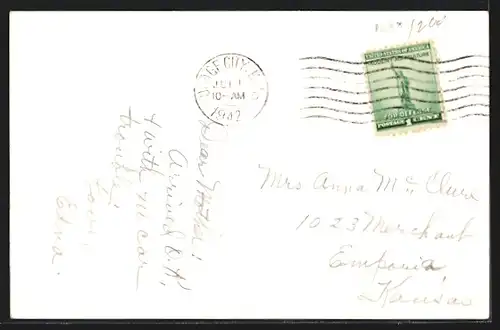 DODGE CITY, KANS.
JUL 1
10-AM
1942
UNITED STATES OF AMERICA
INDUSTRY AGRICULTURE
FOR DEFENSE
1
POSTAGE CENTS
Dear Mother:
Arrived O.K.
& with no car
trouble.
Love,
Edna.
Mrs Anna McClure
1023 Merchant
Emporia
Kansas